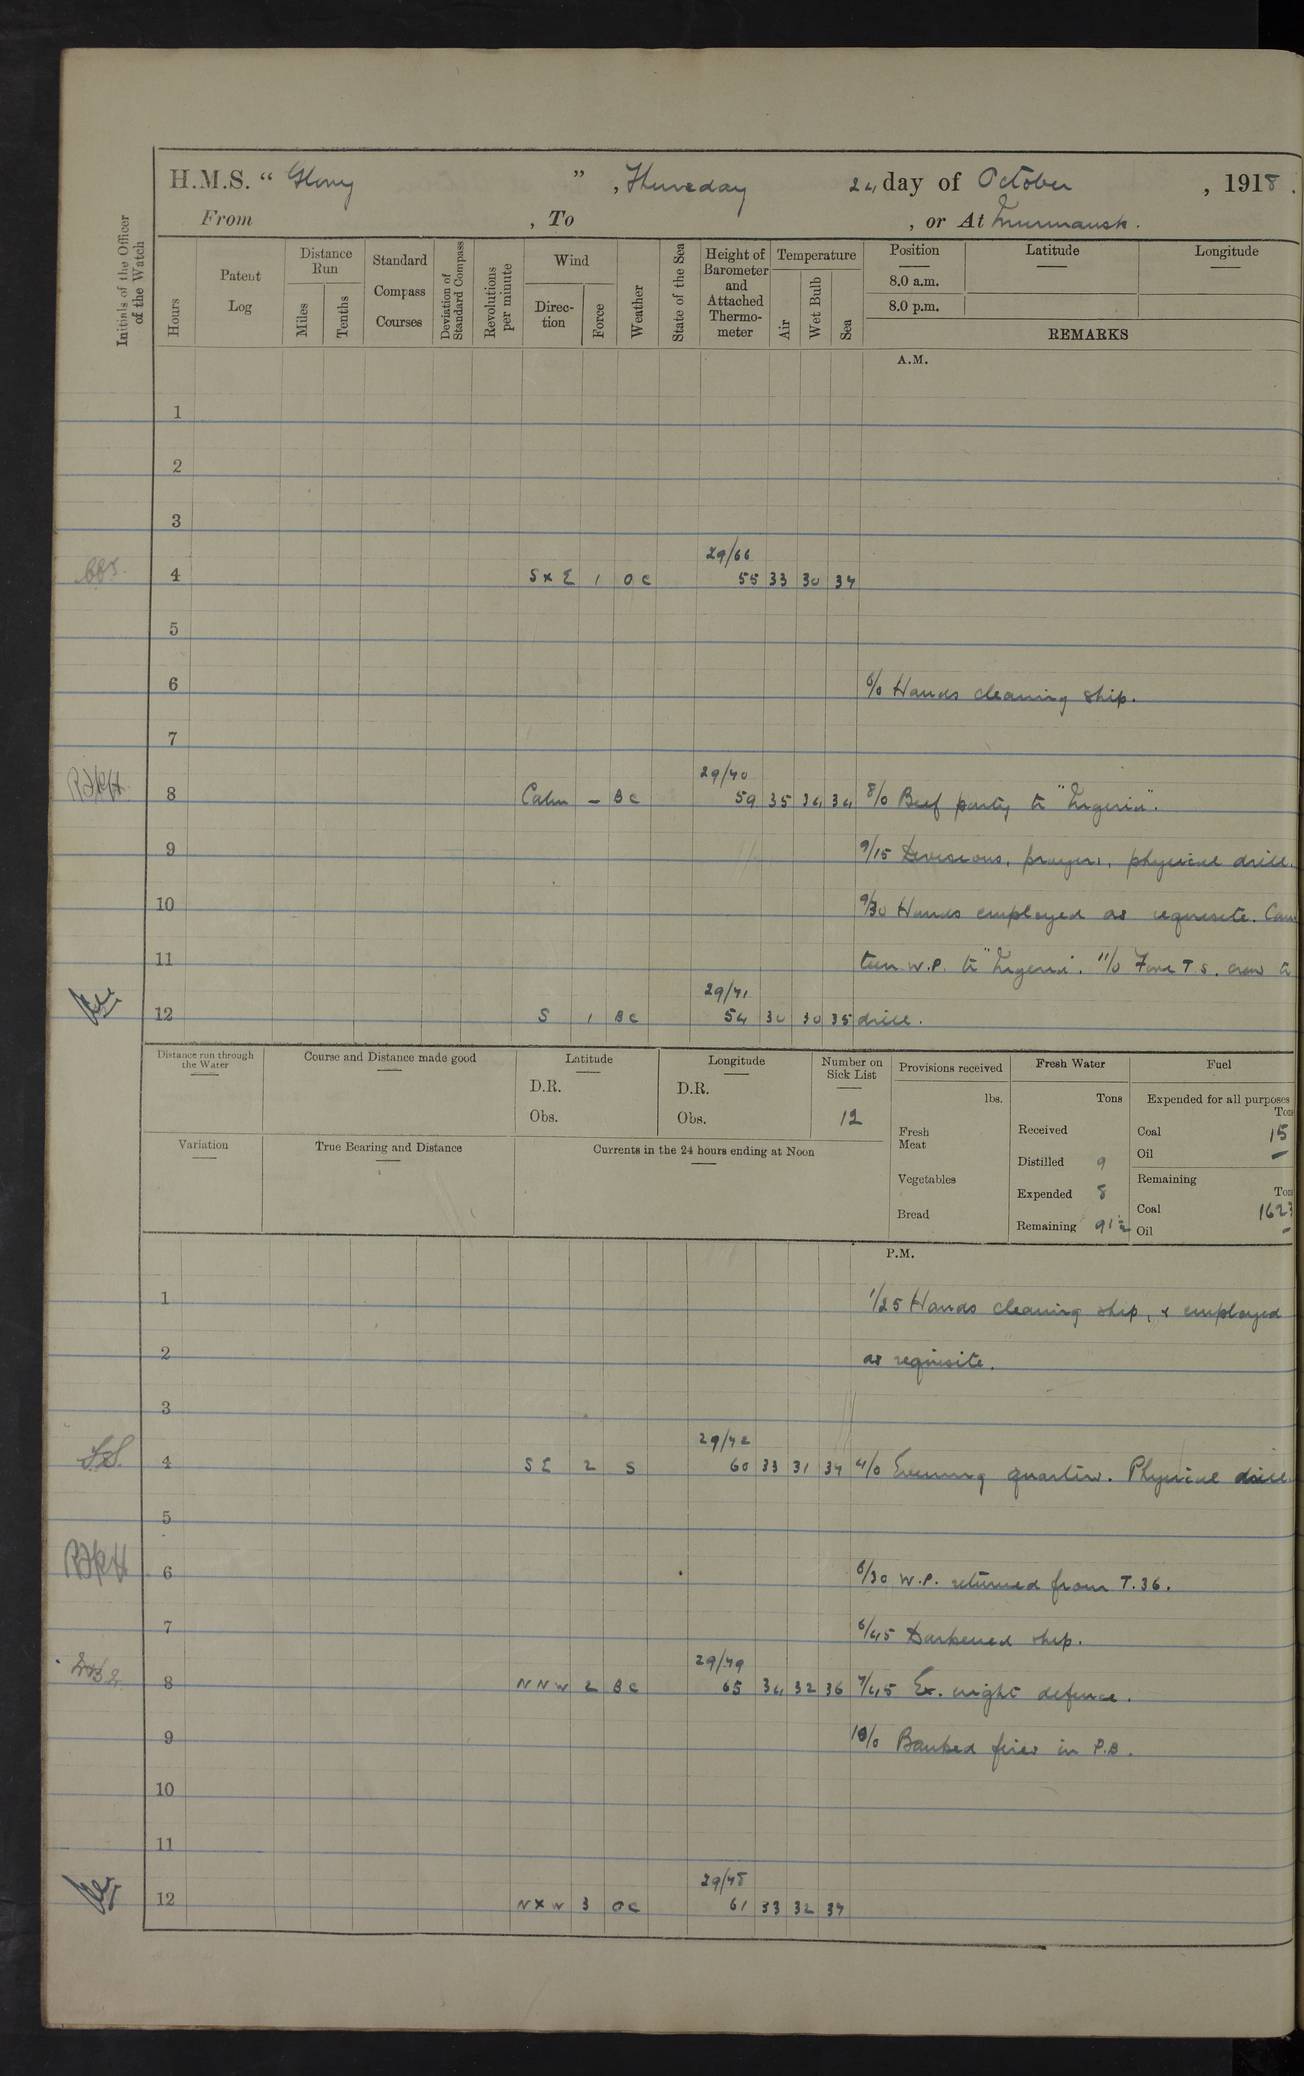 H.M.S. " Glory " , Thursday 24 day of October , 1918 .
From , To , or At Murmansk .
Initials of the Officer of the Watch
Hours
Patent Log
Distance Run
Miles
Tenths
Standard Compass Courses
Deviation of Standard Compass
Revolutions per minute
Wind
Direc-tion
Force
Weather
State of the Sea
Height of Barometer and Attached Thermo-meter
Temperature
Air
Wet Bulb
Sea
Position
8.0 a.m.
8.0 p.m.
Latitude
Longitude
REMARKS
A.M.
1
2
3
29/66
4 S x E 1 O C 55 33 30 34
5
6 6/0 Hands cleaning ship.
7
29/70
8 Calm – B C 59 35 34 34 8/0 Beef party to "Nigeria".
9 9/15 Divisions, prayers, physical drill.
10 9/30 Hands employed as requisite. Can
11 teen W.P. to "Nigeria". 11/0 Fore T.S. crew to
29/71
12 S 1 B C 54 30 30 35 drill.
Distance run through the Water
Course and Distance made good
Latitude
D.R.
Obs.
Longitude
D.R.
Obs.
Number on Sick List
12
Provisions received
lbs.
Fresh Meat
Vegetables
Bread
Fresh Water
Tons
Received
Distilled 9
Expended 8
Remaining 91½
Fuel
Expended for all purposes
Tons
Coal 15
Oil –
Remaining
Tons
Coal 1623
Oil –
Variation
True Bearing and Distance
Currents in the 24 hours ending at Noon
P.M.
1 1/25 Hands cleaning ship, & employed
2 as requisite.
3
29/72
4 S E 2 S 60 33 31 34 4/0 Evening quarters. Physical drill.
5
6 6/30 W.P. returned from T.36.
7 6/45 Darkened ship.
29/79
8 N N W 2 B C 65 34 32 36 7/45 Ex. night defence.
9 10/0 Banked fires in P.B.
10
11
29/78
12 N x W 3 O C 61 33 32 34